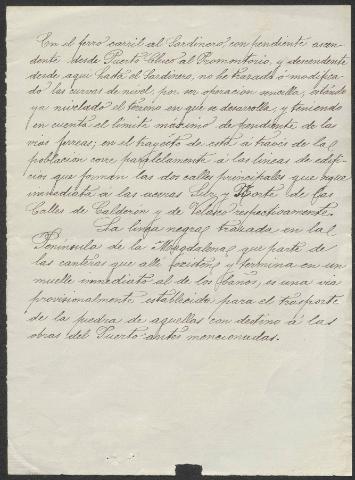 En el ferro carril al Sardinero, con pendiente ascen-
dente desde Puerto Chico al Promontorio, y descendente
desde aqui hasta el Sardinero, no he trazado ó modifica-
do las curvas de nivel por ser operación sencilla, estando
ya nivelado el terreno en que se desarrolla, y teniendo
en cuenta el limite máximo de pendiente de las
vias ferreas; en el trayecto de esta á traves de la
población corre paralelamente á las lineas de edifi-
cios que forman las dos calles principales que
inmediata á las aceras Sur y Norte de las
Calles de Calderon y de Velasco respectivamente.
La linea negra trazada en la
Peninsula de la Magdalena que parte de
las canteras que alli existen y termina en un
muelle inmediato al de los baños, es una via
provisionalmente establecida para el trasporte
de la piedra de aquellas con destino á las
obras del Puerto antes mencionadas.